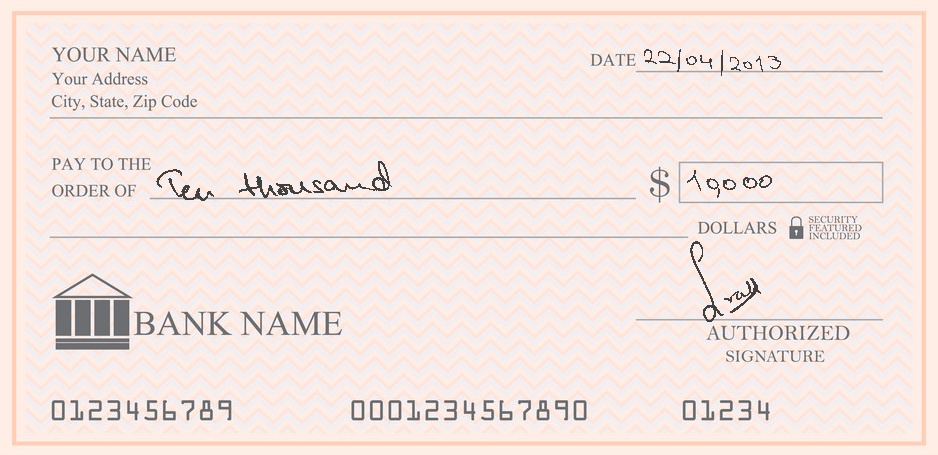 YOUR NAME
Your Address
City, State, Zip Code
DATE 22/04/2013
PAY TO THE
ORDER OF Ten thousand
$ 10000
DOLLARS
SECURITY
FEATURED
INCLUDED
BANK NAME
AUTHORIZED
SIGNATURE
0123456789 0001234567890 01234